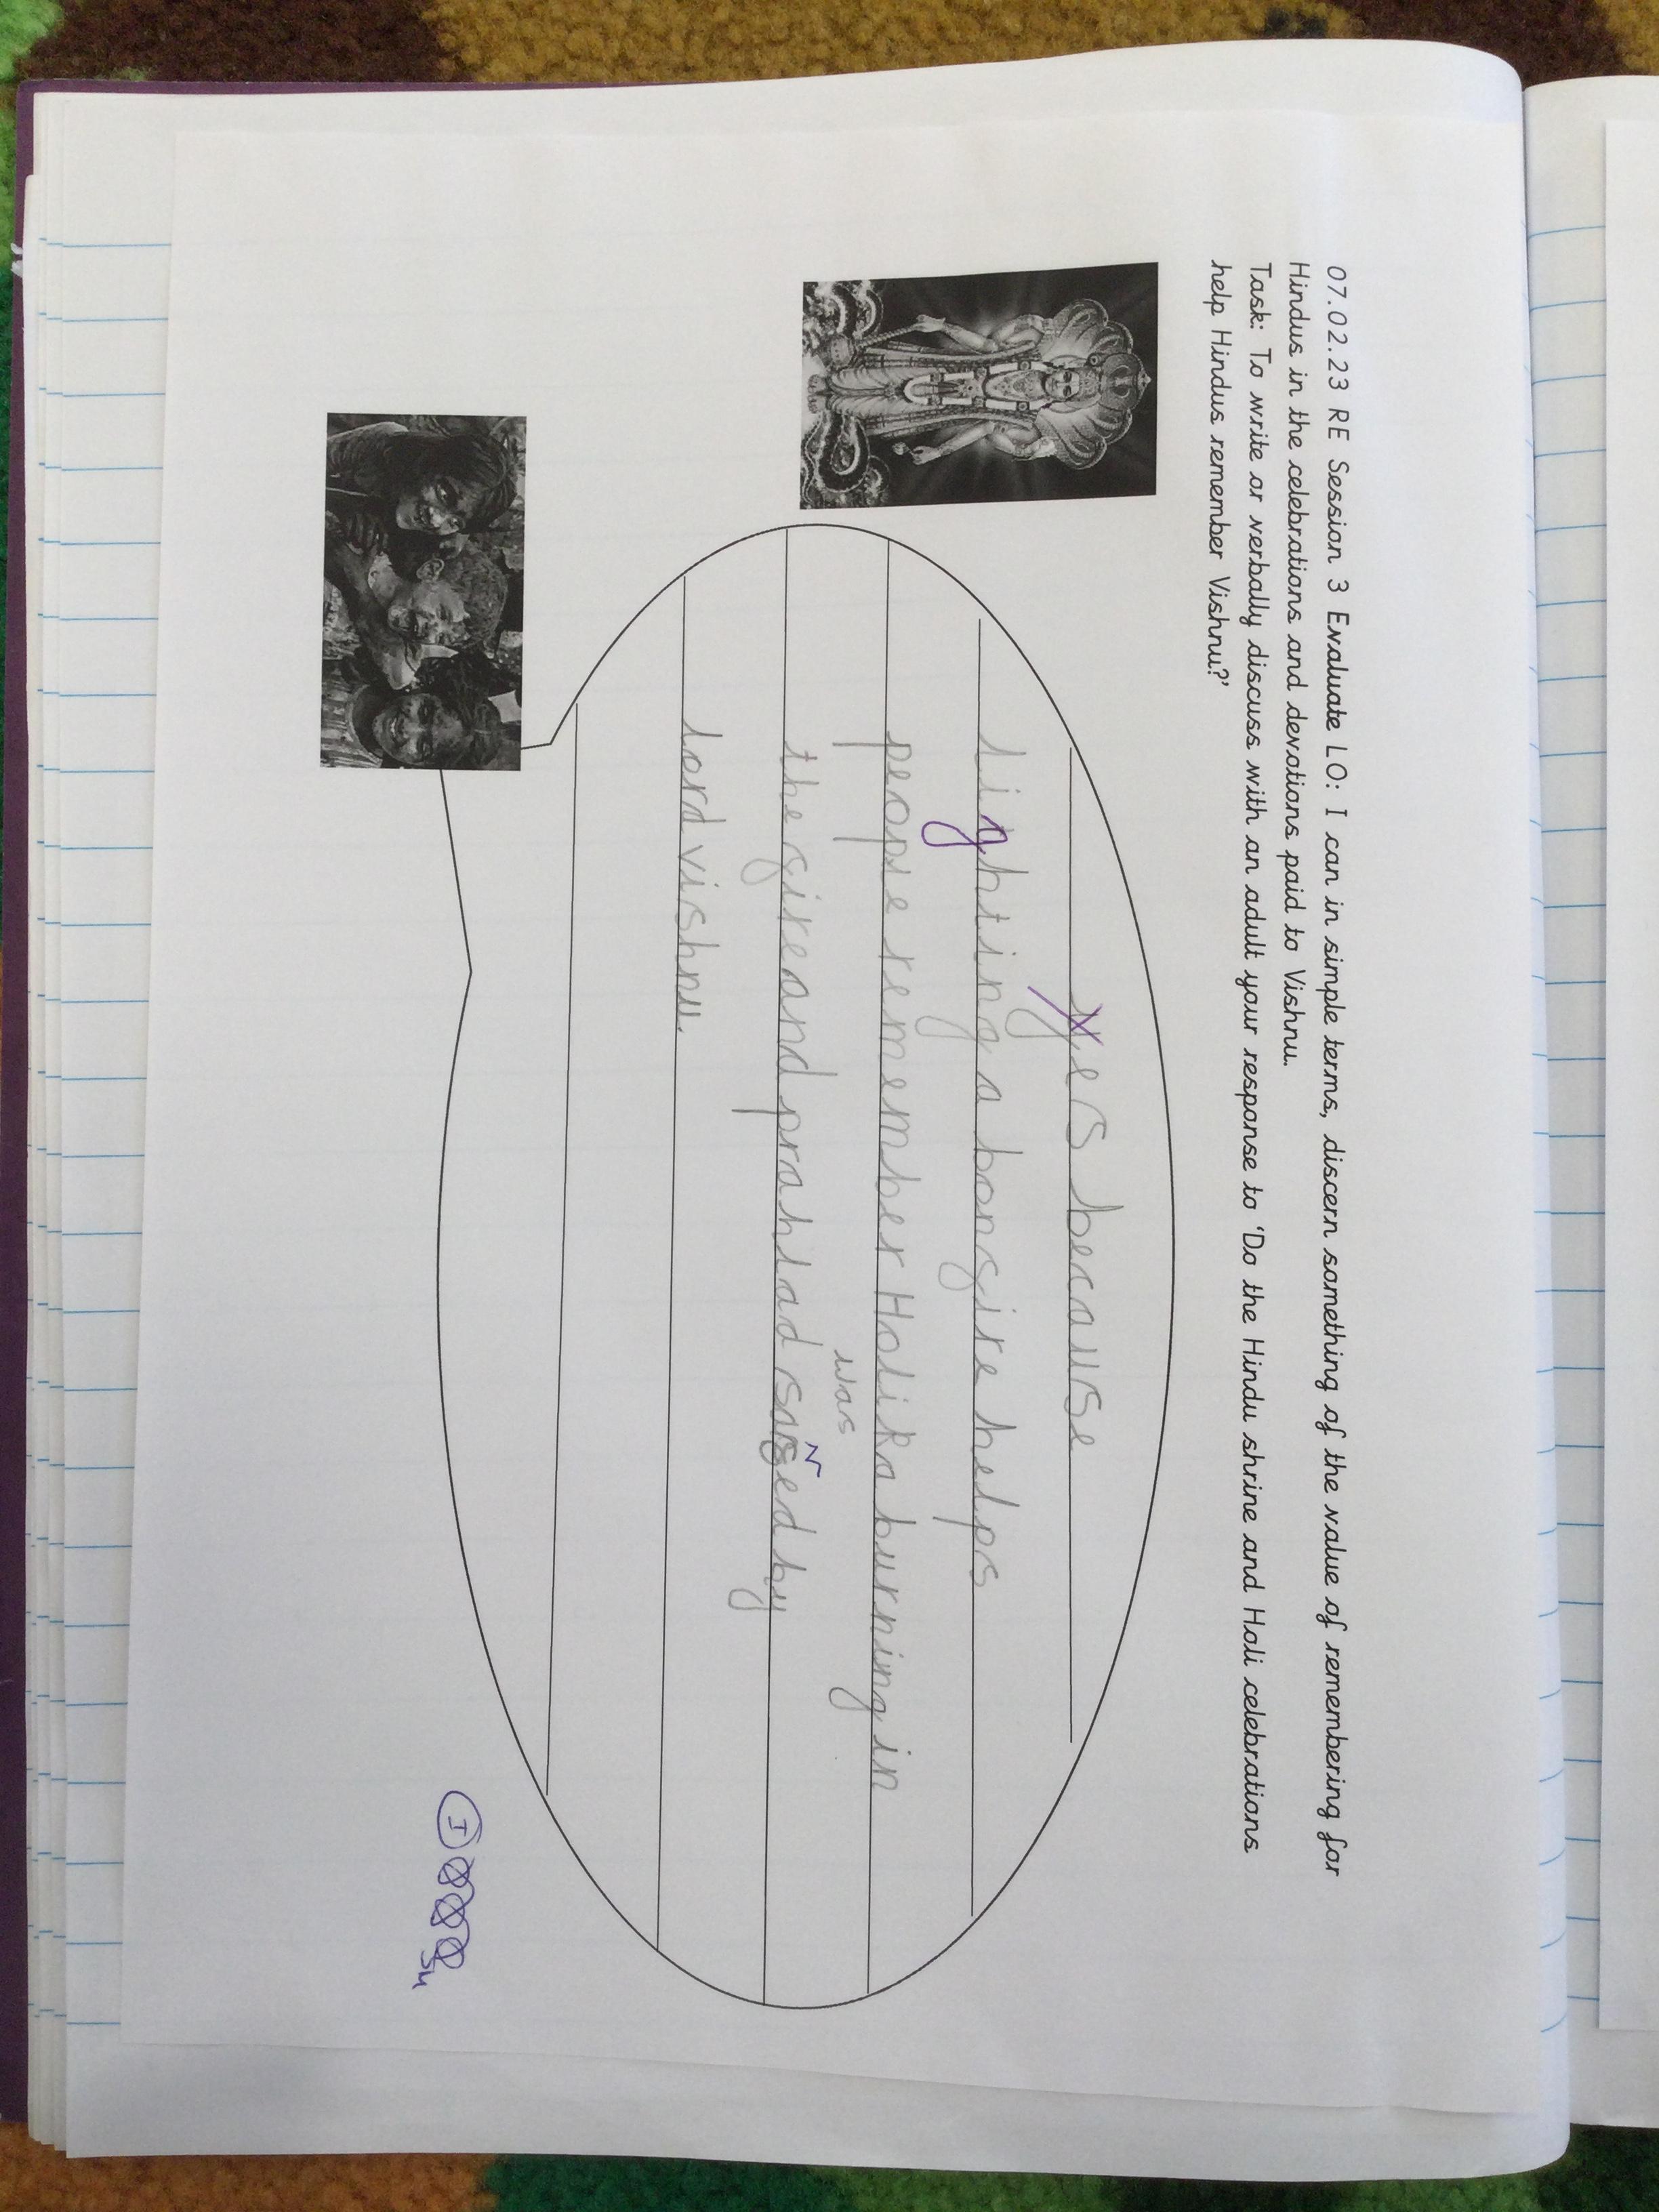 07.02.23 RE Session 3 Evaluate LO: I can in simple terms, discern something of the value of remembering for
Hindus in the celebrations and devotions paid to Vishnu.
Task: To write or verbally discuss with an adult your response to 'Do the Hindu shrine and Holi celebrations
help Hindus remember Vishnu?'
yes because
lighting a bongire helps
peopse remember Holika burning in
was
the gire and prahlad saved by
lord vishnu.
I